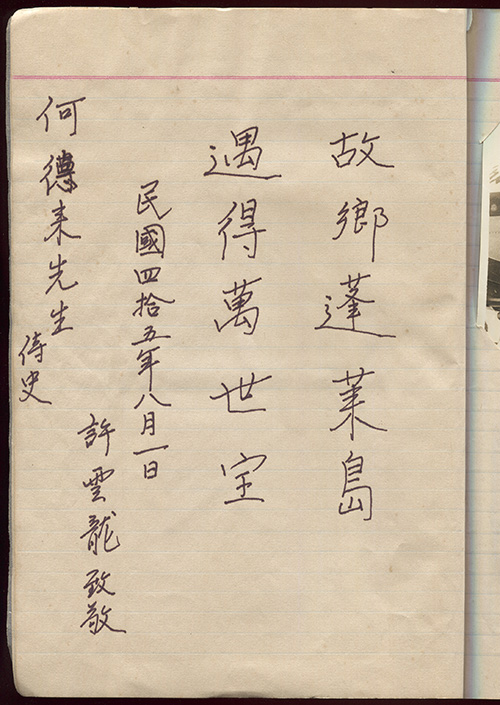 故鄉蓬萊島
遇得萬世宝
民國四拾五年八月一日
許雲龍致敬
何德来先生侍史